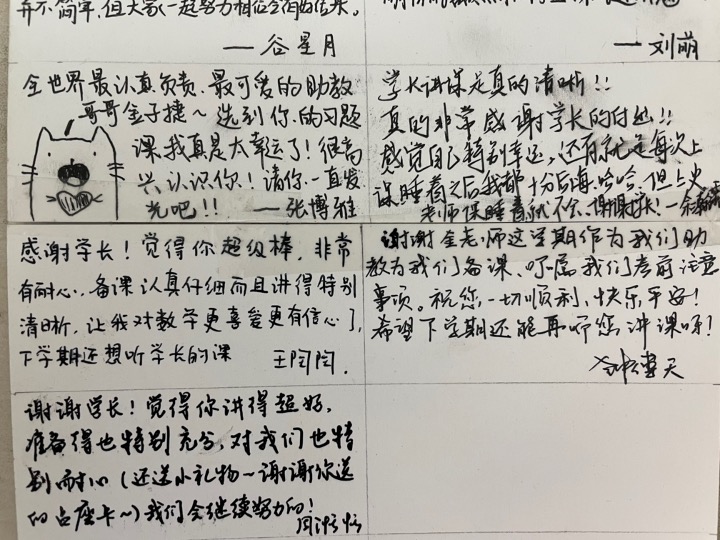 并不简单,但大家一起努力相信会有好结果。
——谷星月
——刘萌
全世界最认真负责、最可爱的助教
哥哥金子捷~选到你的习题
课我真是太幸运了!很高
兴认识你!请你一直发
光吧!!
——张博雅
学长讲课是真的清晰!!
真的非常感谢学长的付出!!
感觉自己特别幸运,还有就是每次上
课睡着之后我都十分后悔哈哈 但上
老师课睡着就不会、谢谢学长!—余
感谢学长!觉得你超级棒,非常
有耐心、备课认真仔细而且讲得特别
清晰,让我对数学更喜爱更有信心了,
下学期还想听学长的课 王陶陶.
谢谢金老师这学期作为我们助
教为我们备课、叮嘱我们考前注意
事项。祝您一切顺利,快乐平安!
希望下学期还能再听您讲课呀!
天
谢谢学长!觉得你讲得超好,
准备得也特别充分,对我们也特
别耐心(还送小礼物~谢谢你送
的占座卡~)我们会继续努力的!